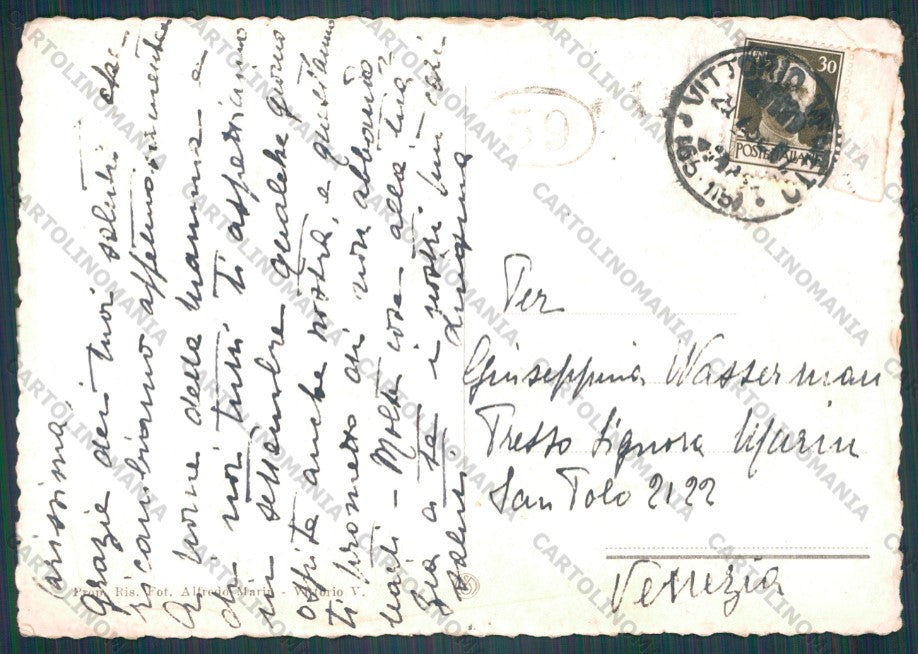 Carissima,
Grazie dei tuoi saluti che
ricambiamo affettuosamente
A nome della mamma e
di noi tutti, ti aspettiamo
in settembre qualche giorno
ospite anche nostra, e questanno
ti prometto di non abbando
narti - Molte cose alla tua
e a te i nostri più cari
saluti
Prop. Ris. Fot. Alfredo Marin - Vittorio V.
30
VITTORIO VENETO
30
POSTE ITALIANE
Per
Giuseppina Wasserman
Presso Signora Marin
San Polo 2122
Venezia
CARTOLINOMANIA